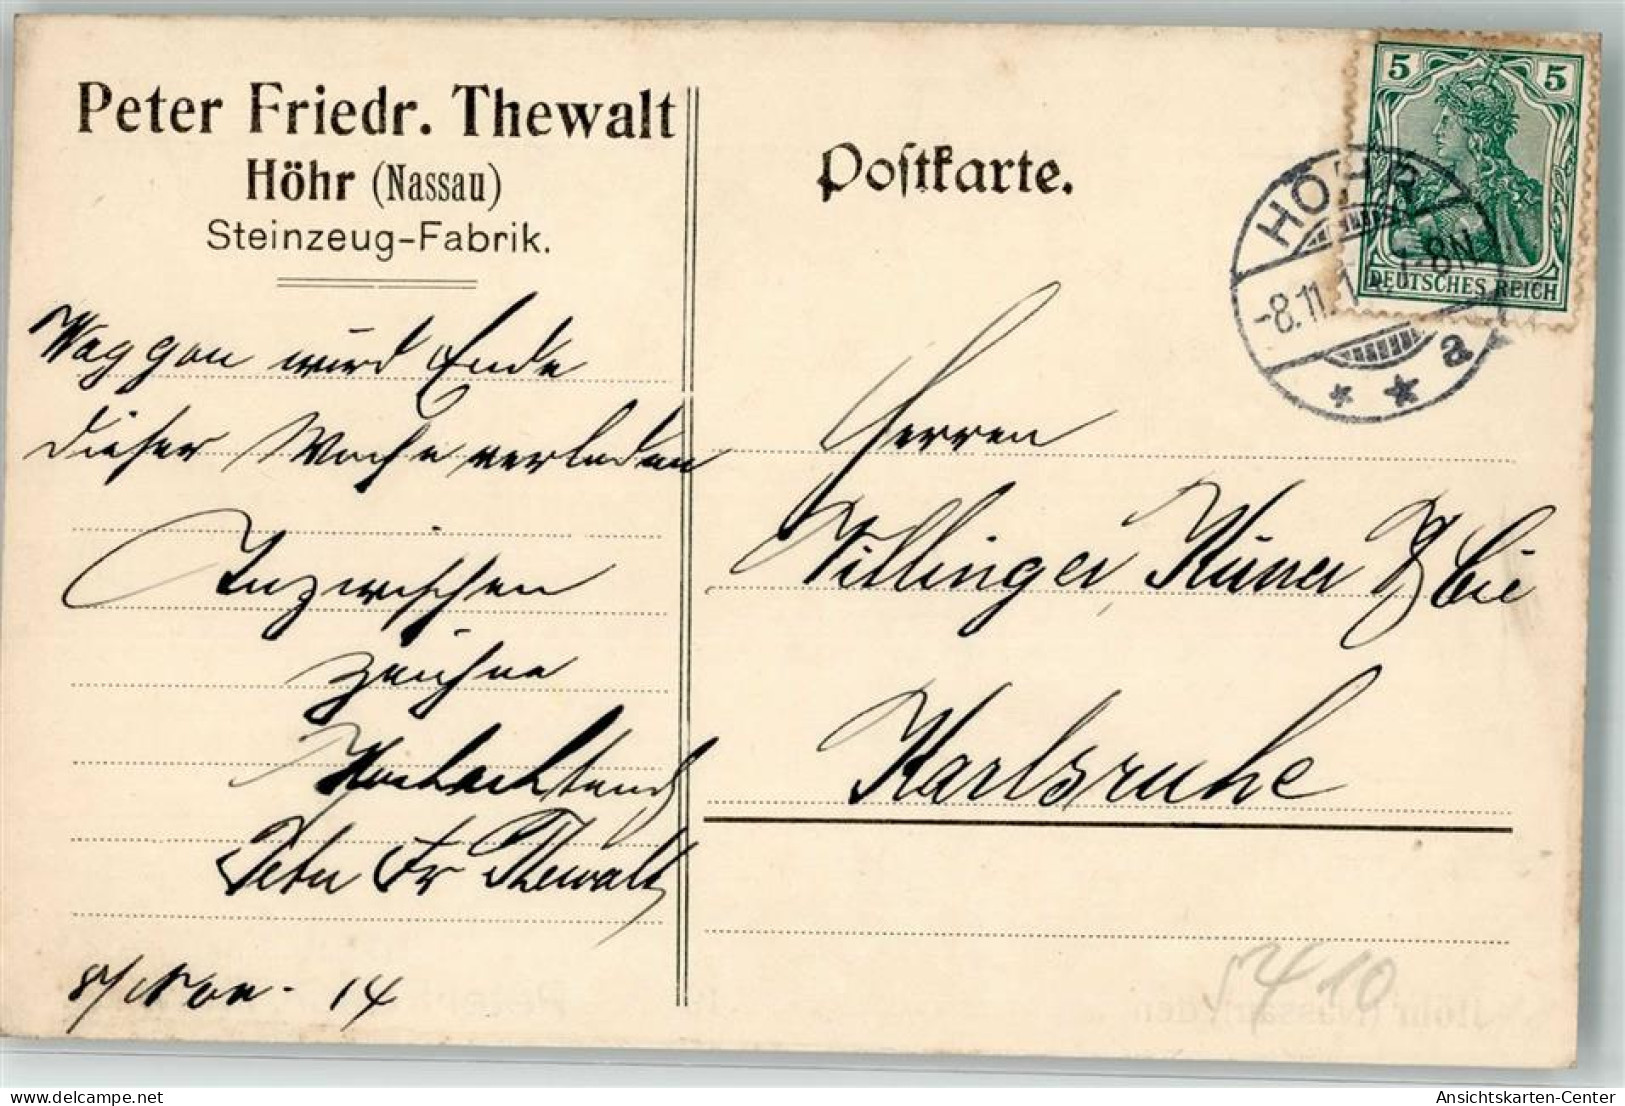 Peter Friedr. Thewalt
Höhr (Nassau)
Steinzeug-Fabrik.
Waggon wird Ende
dieser Woche verladen
Inzwischen
zeichne
Hochachtend
Peter Fr Thewalt
8/Nov. 14
Postkarte.
5 5
DEUTSCHES REICH
HÖHR
-8.11.1 -8N
* * a
Herren
Villinger, Küner & Cie
Karlsruhe
10
Ansichtskarten-Center